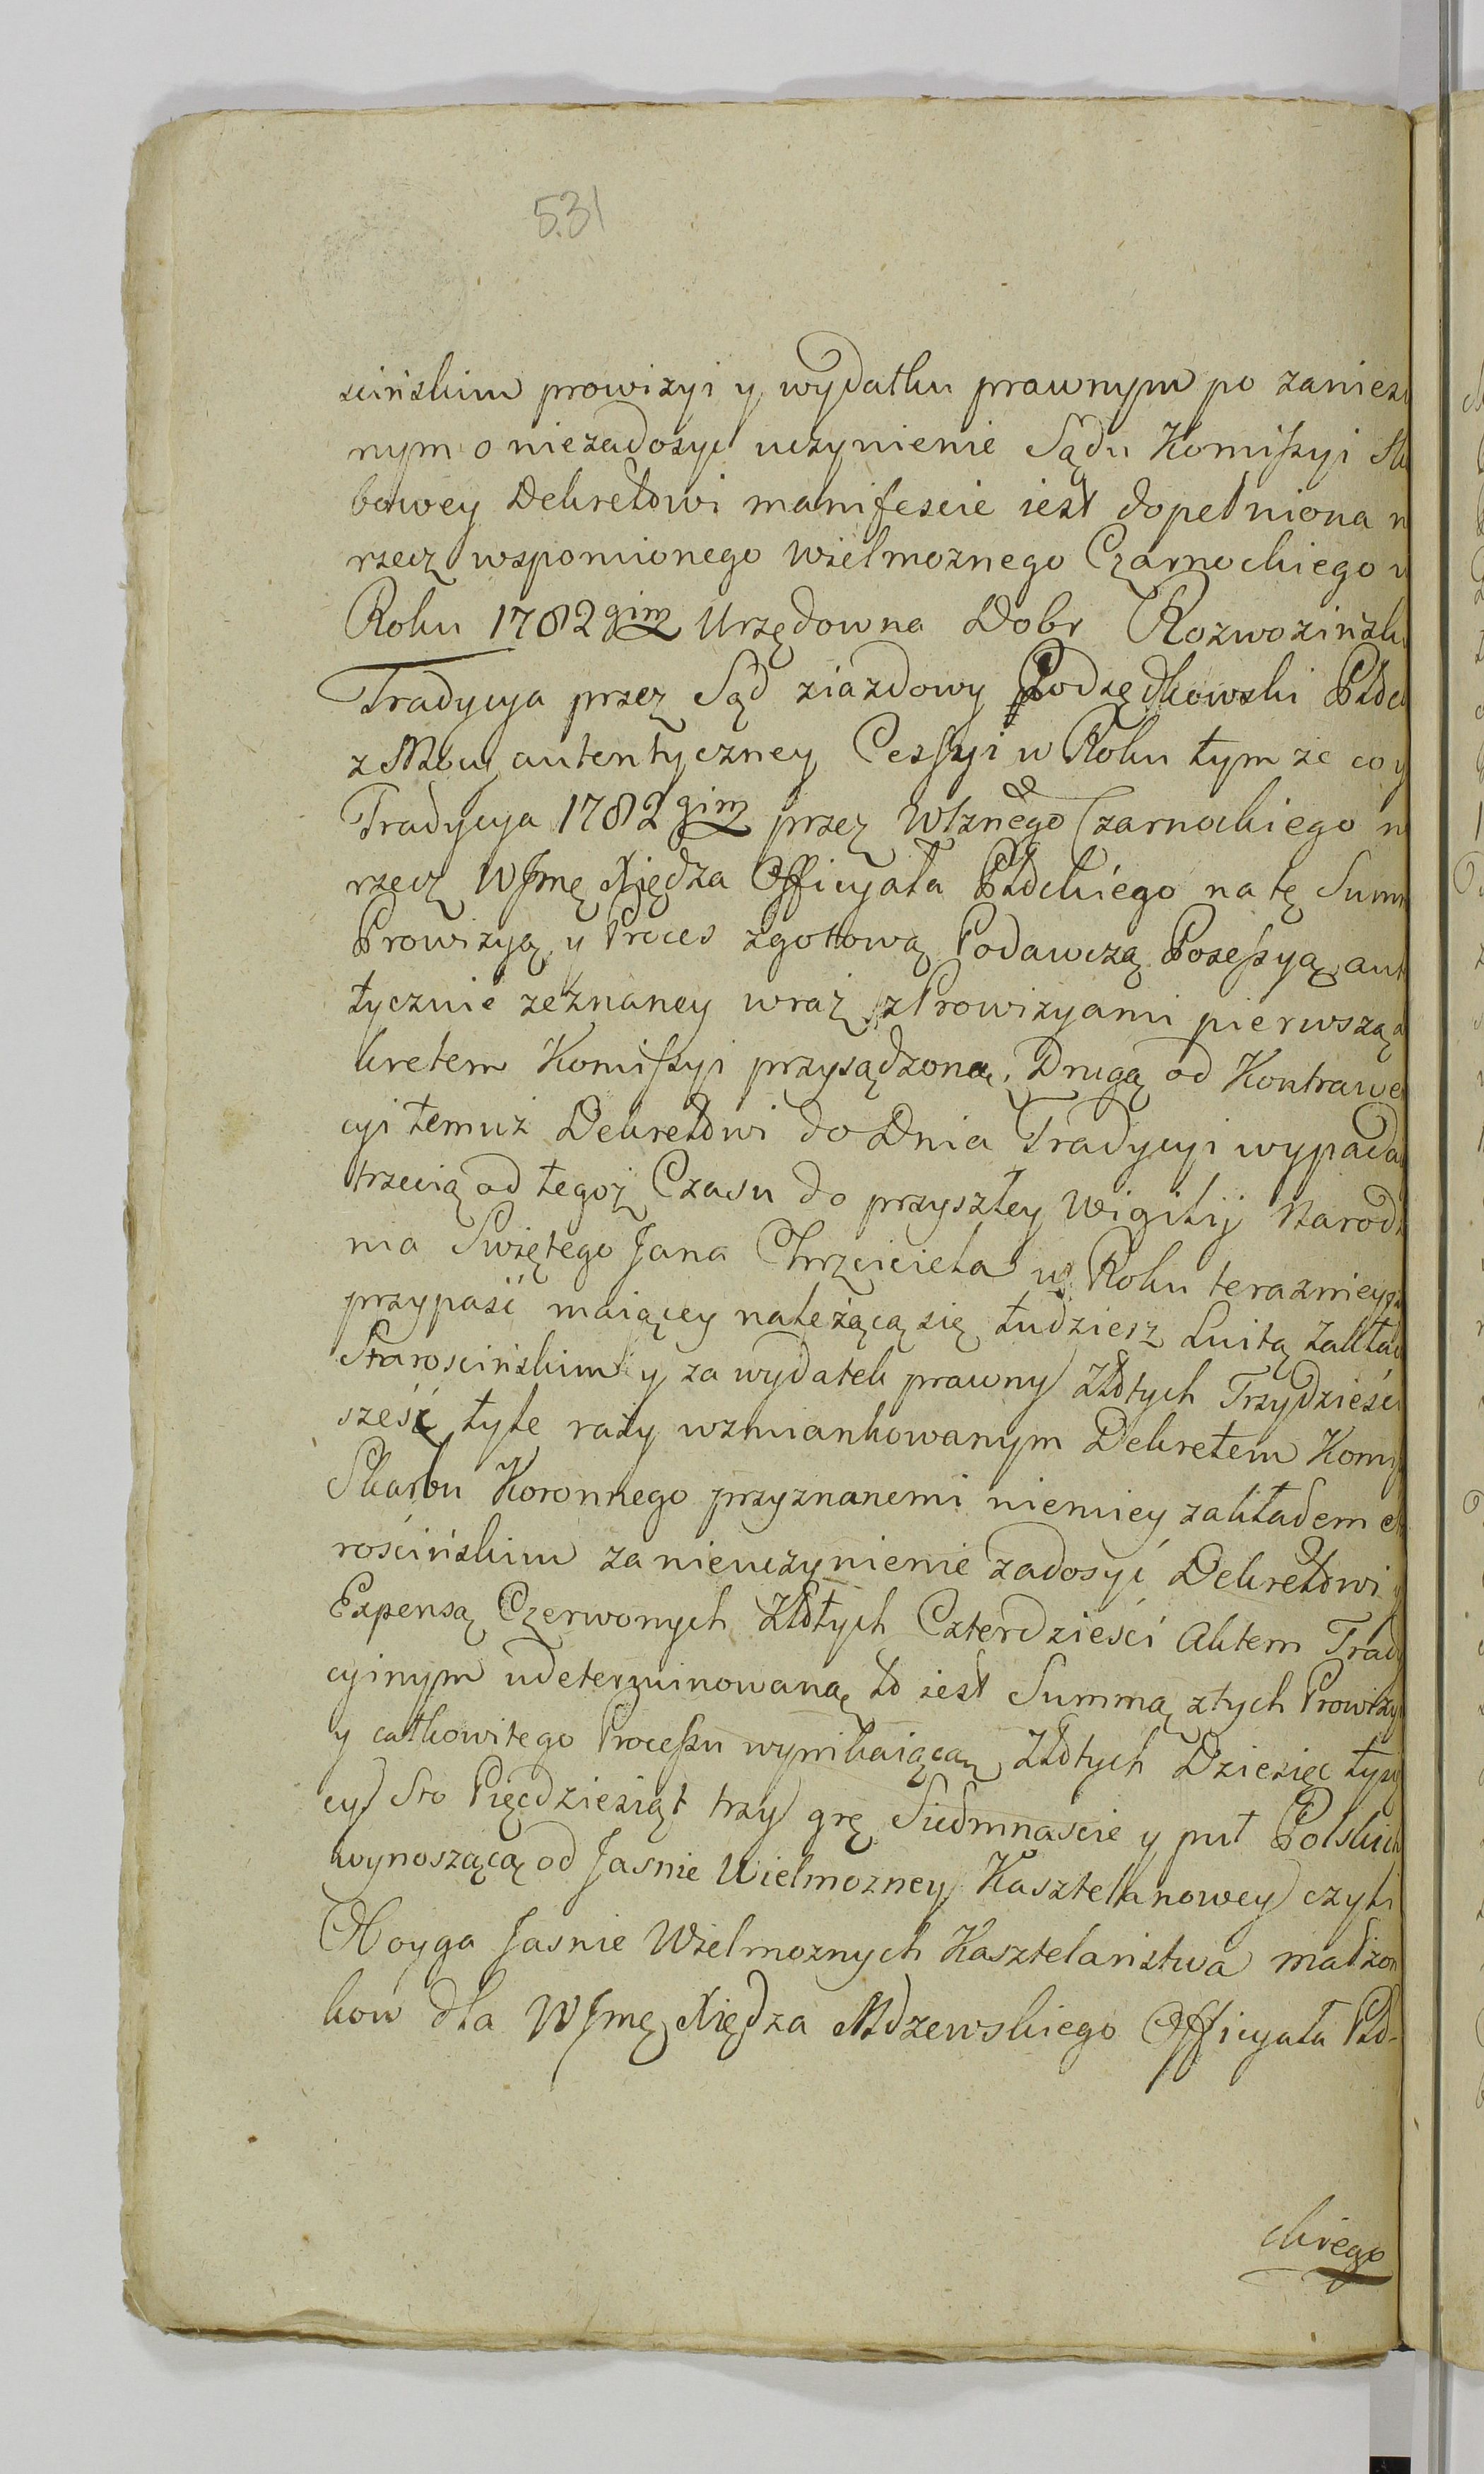 531
scińskim prowizyi y wydatku prawnym po zanies
nym o niezadosyć uczynienie Sądu Komissyi Sk
bowey Dekretowi manifescie iest dopełniona n
rzecz wspomionego Wielmoznego Czarnockiego w
Roku 1782gim Urzędowna Dobr Rozwozińsk
Tradycya przez Sąd ziazdowy Podsędkowski
z Mocy autentyczney Cessyi w Roku tymze co y
Tradycya 1782gim przez Wlznego Czarnockiego n
rzecz WJmę Xiędza Officyała na tę Summ
Prowizyą y Proces zgotową Podawczą Posessyą aut
tycznie zeznaney wraz z Prowizyami pierwszą d
kretem Komissyi przysądzoną, Drugą od Kontrawe
cyi temuż Dekretowi do Dnia Tradycyi wypada
trzecią od tegoż Czasu do przyszłey Wigilij Narodz
nia Swiętego Jana Chrzciciela w Roku teraznieysz
przypaść maiącey należącą się tudziesz Luitą zakład
Starościńskim y za wydatek prawny Złotych Trzydzieśc
sześć tyle razy wzmiankowanym Dekretem Komis
Skarbu Koronnego przyznanemi niemiey zakładem St
rościńskim za nieuczynienie zadosyć Dekretowi y
Expensą Czerwonych Złotych Czterdzieści Aktem Trady
cyinym udeterminowaną to iest Summą z tych Prowizy
y całkowitego Processu wynikaiącą Złotych Dziesięc tysię
cy Sto Pięcdziesiąt trzy grę Siedmnascie y puł Polskich
wynoszącą od Jasnie Wielmozney Kasztelanowey czyli
Oboyga Jasnie Wielmoznych Kasztelaństwa małżon
ków dla WJmę Xiędza Mdzewskiego Officyała Płd-
ckiego